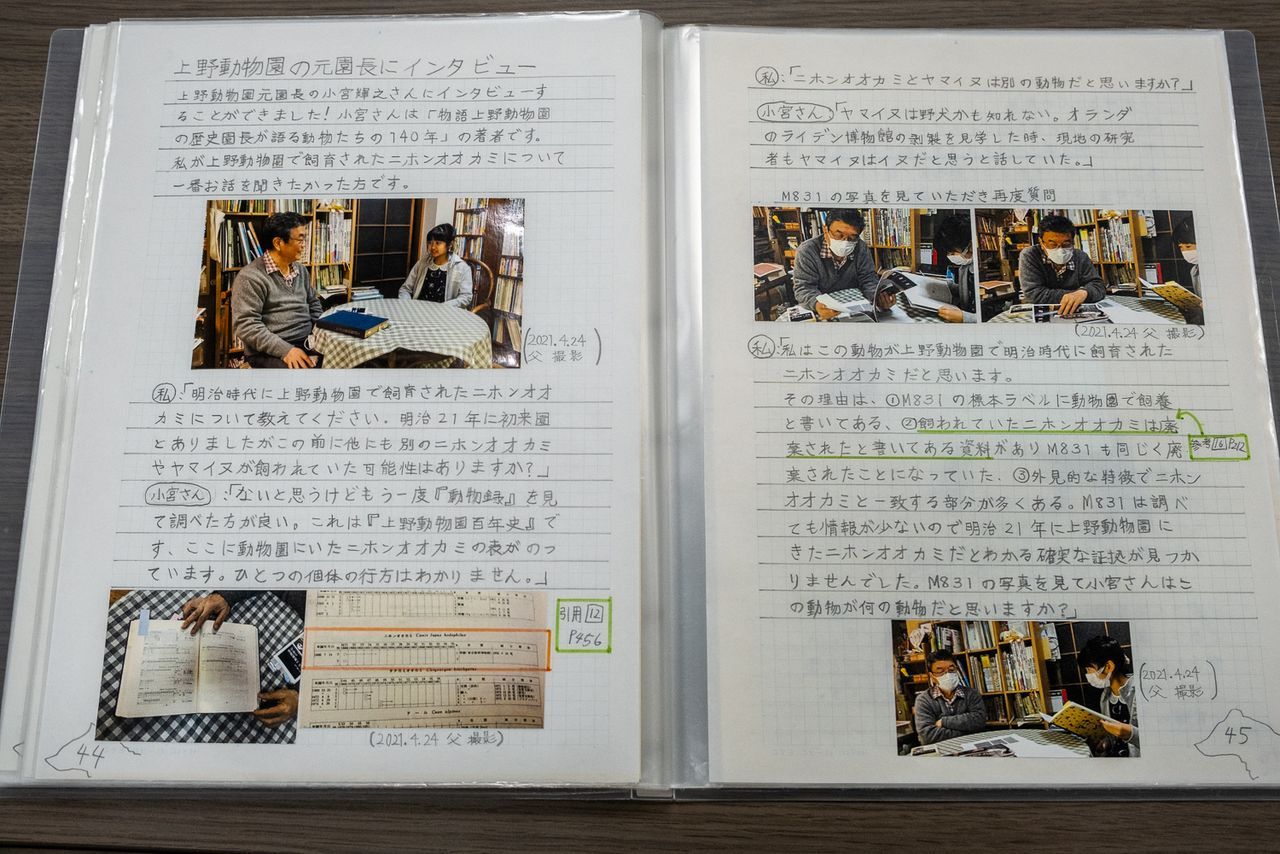 上野動物園の元園長にインタビュー
上野動物園元園長の小宮輝之さんにインタビューす
ることができました！小宮さんは「物語上野動物園
の歴史園長が語る動物たちの140年」の著者です。
私が上野動物園で飼育されたニホンオオカミについて
一番お話を聞きたかった方です。
(2021.4.24
父 撮影)
私:「明治時代に上野動物園で飼育されたニホンオオ
カミについて教えてください。明治21年に初来園
とありましたがこの前に他にも別のニホンオオカミ
やヤマイヌが飼われていた可能性はありますか？」
小宮さん:「ないと思うけどもう一度『動物録』を見
て調べた方が良い。これは『上野動物園百年史』で
す、ここに動物園にいたニホンオオカミの表がのっ
ています。ひとつの個体の行方はわかりません。」
引用[12]
P456
(2021.4.24 父 撮影)
44
私:「ニホンオオカミとヤマイヌは別の動物だと思いますか？」
小宮さん「ヤマイヌは野犬かも知れない。オランダ
のライデン博物館の剥製を見学した時、現地の研究
者もヤマイヌはイヌだと思うと話していた。」
M831の写真を見ていただき再度質問
(2021.4.24 父 撮影)
私:「私はこの動物が上野動物園で明治時代に飼育された
ニホンオオカミだと思います。
その理由は、①M831の標本ラベルに動物園で飼養
と書いてある、②飼われていたニホンオオカミは廃
棄されたと書いてある資料がありM831も同じく廃
参考[16]P212
棄されたことになっていた、③外見的な特徴でニホン
オオカミと一致する部分が多くある。M831は調べ
ても情報が少ないので明治21年に上野動物園に
きたニホンオオカミだとわかる確実な証拠が見つか
りませんでした。M831の写真を見て小宮さんはこ
の動物が何の動物だと思いますか？」
(2021.4.24
父 撮影)
45